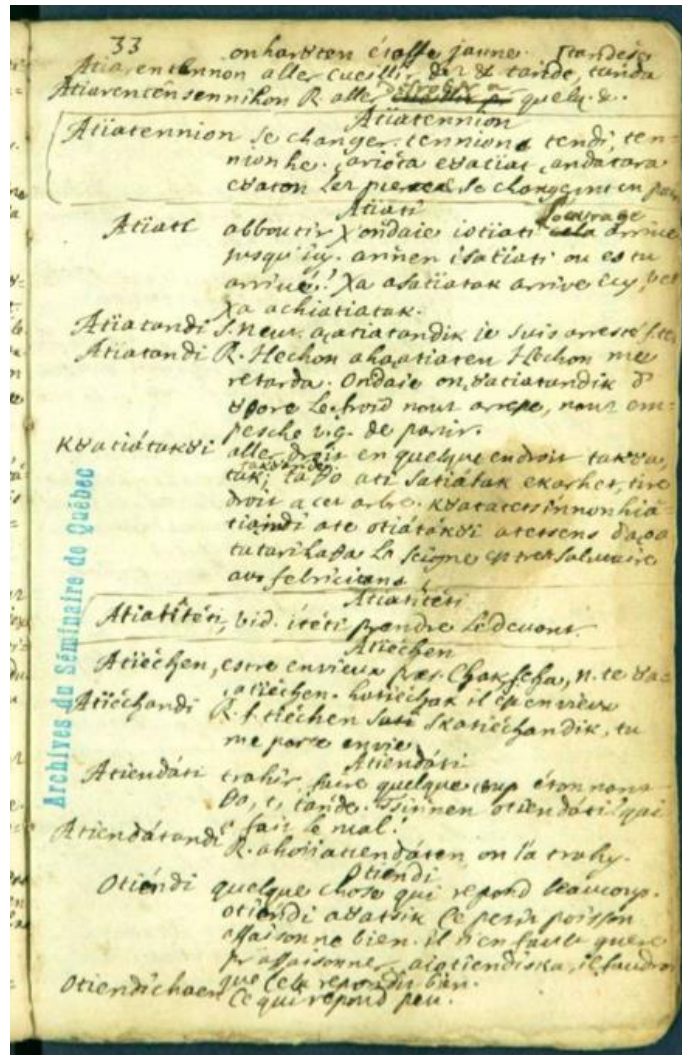 33
onharȣten étoffe jaune. tandesk
Atiarentennon aller cueillir de 2 & tande, tanda
Atiarentensennikon R. aller quelq. &.
Atiatennion
Atiatennion se changer. tennions tendi, ten-
nionhe. ,ariota eȣatiat, andatara
eȣaton les pierres se changeint en pain
Atiati
l'ouvrage
Atiati abboutir χ' ondaie iotiati cela arrive
jusqu'icy. annen isatiati ou es tu
arrivé? χa asatiatak arrive icy, vel
χa achiatiatak.
Atiatandi S. neut. a,atiatandik ie suis arresté
Atiatandi R. Hechon aha,atiaten Hechon me
retarda. Ondaie on,ȣatiatandik d'
ȣtore le froid nous arreste, nous em-
pesche v.g. de partir.
Kȣatiátakȣi aller droit en quelque endroit takȣa,
takȣande
tak; ati satiátak ekarhet, tire
droit a cet arbre. Kȣatatetsinnonhiá-
tiandi ate otiátakȣi atetsens
La seigné est tres salutaire
aux febricitans
Atiatitéti
Atiatitéti, vid. itéti prendre le devant.
Atiechen
Atiéchen, estre envieux præs. Chak fcha, n. te ȣa-
,atiéchen. hotiéchak il est envieux
Atiéchandi R. f. tiéchen skatiéchandik, tu
me porte envie
Atiendáti
Atiendáti trahir, faire quelque coup étonnant
ȣa, t, tande. Tsinnen otiendáti? qui
a fait le mal?
Atiendátandi R. ahoȣatiendáten on l'a trahy.
Otiendi
Otiéndi quelque chose qui répond beaucoup.
otiendi aȣatsik Ce petit poisson
assaisonne bien. il n'en faut guere
pr assaisonner, aiotiendiska, il faudroit
que cela repondit bien.
Otiendichaen Ce qui répond peu.
Archives du Séminaire de Québec